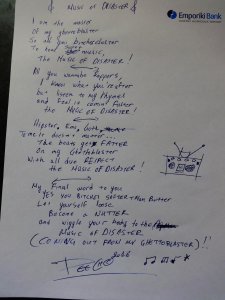 MUSIC OF DISASTER
Emporiki Bank
I am the master
Of my ghettoblaster
So all you
To hear my MUSIC,
The MUSIC OF DISASTER!
All you wannabe Rappers,
I know what you're after
But listen to my Rhymes
And feel is comin' faster
the MUSIC OF DISASTER!
Hipster, Emo, Goth,
To me it doesn't matter
The beat gets FATTER
On my Ghettoblaster
With all due RESPECT
the MUSIC OF DISASTER!
My Final word to you
YES you BITCHES SOFTER than Butter
Let yourself loose
Become a NUTTER
and wiggle your body to the
MUSIC OF DISASTER
(COMING OUT FROM MY GHETTOBLASTER)!!